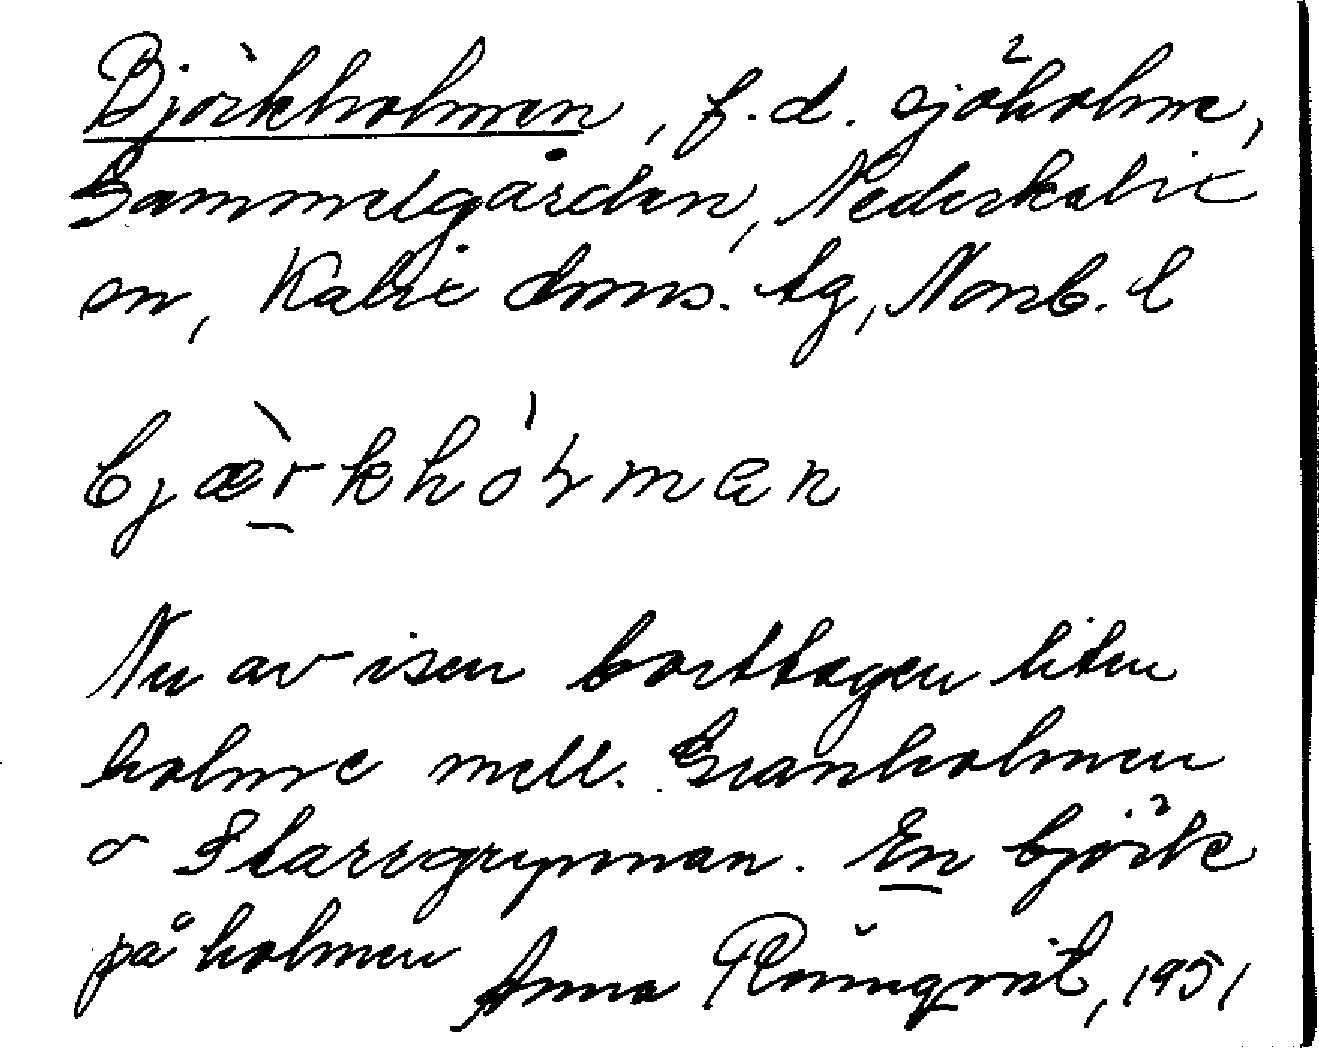 Björkholmen, f.d. sjöholme,
Gammelgården, Nederkalix
sn, Kalix doms. tg, Norrb. l
bjærkhólmen
Nu av isen borttagen liten
holme mell. Granholmen
o Starrgrynnan. En björk
på holmen
Anna Rönnqvist, 1951